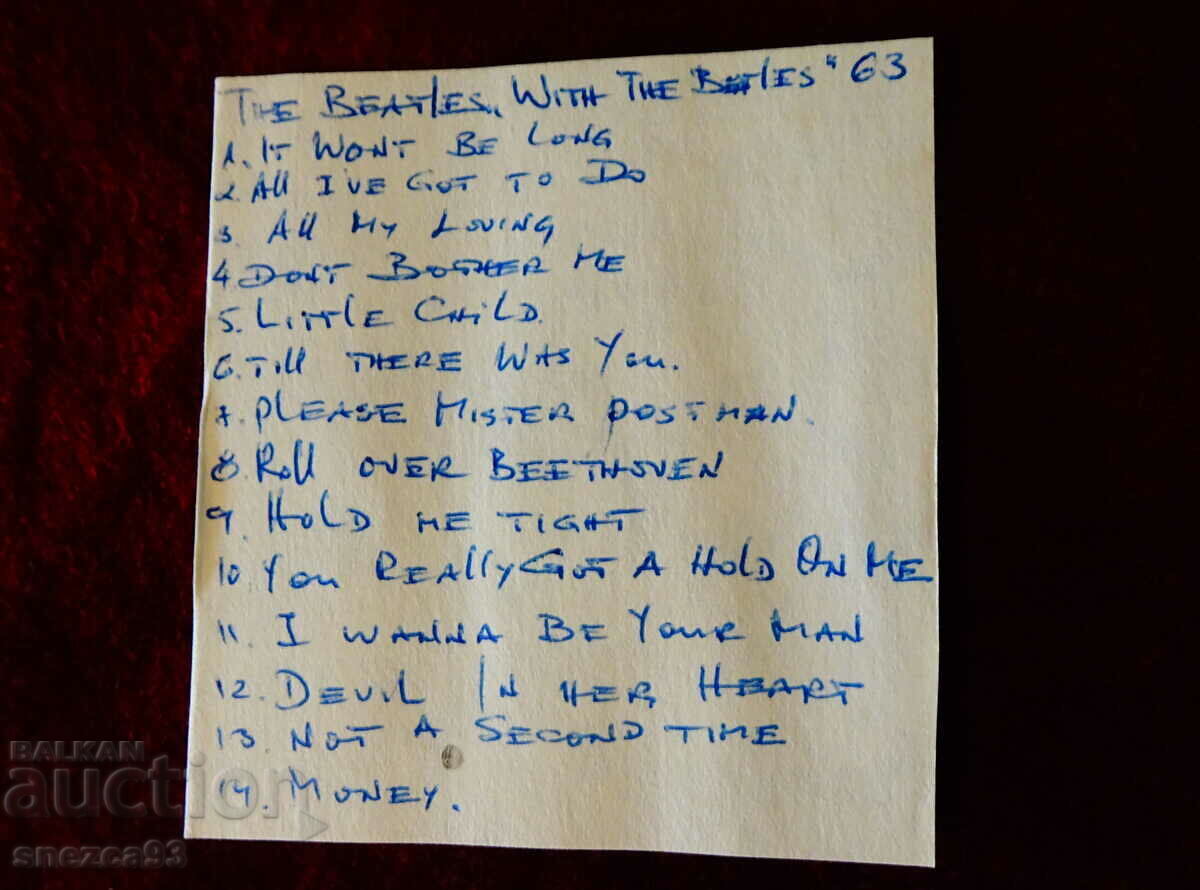 THE BEATLES, WITH THE BETLES" 63
1. IT WONT BE LONG
2. All I'VE GOT TO DO
3. All MY LOVING
4 DONT BOTHER ME
5. LITTLE CHILD.
6. Till THERE WAS You.
7. PLEASE MISTER POSTMAN.
8. Roll OVER BEETHOVEN
9. HOLD ME TIGHT
10. You REAlly GOT A HOLD ON ME
11. I WANNA BE YOUR MAN
12. DEVIL IN HER HEART
13. NOT A SECOND TIME
14. MONEY.
BALKAN
auction
snezca93